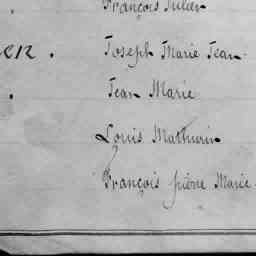 François Julien
Joseph Marie Jean
Jean Marie
Louis Mathurin
François pierre Marie